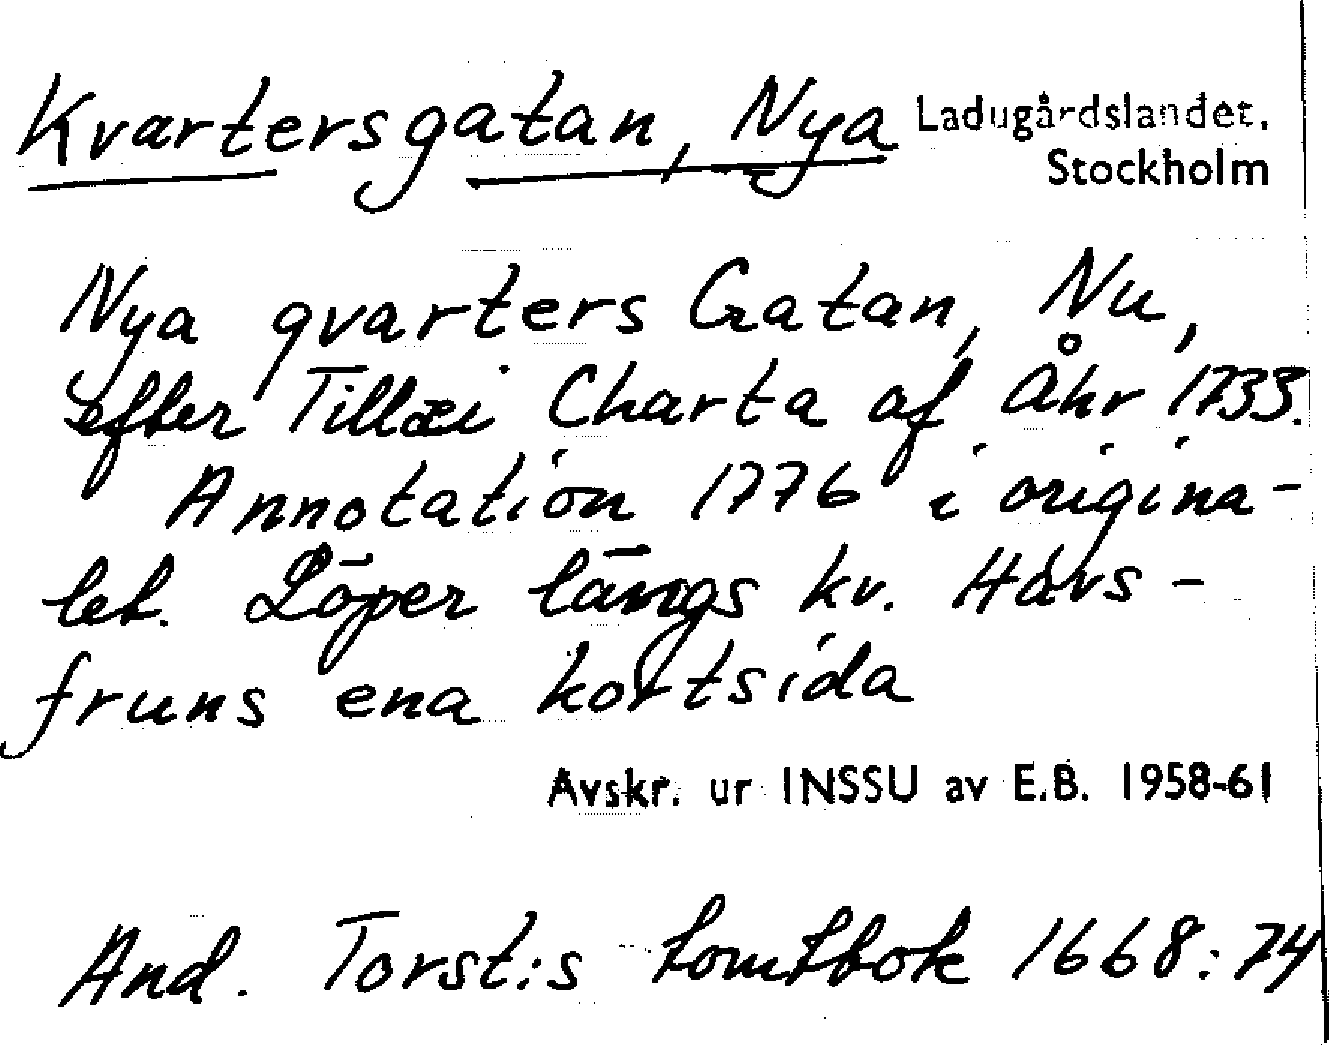 Kvartersgatan, Nya Ladugårdslandet,
Stockholm
Nya qvarters Gatan, Nu,
efter Tillæi Charta af Åhr 1733.
Annotation 1776 i origina-
let. Löper längs kv. Havs-
fruns ena kortsida
Avskr. ur INSSU av E.B. 1958-61
And. Torst:s tomtbok 1668:74